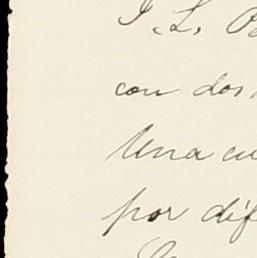 J. L.
con dos
Una cu
por dif